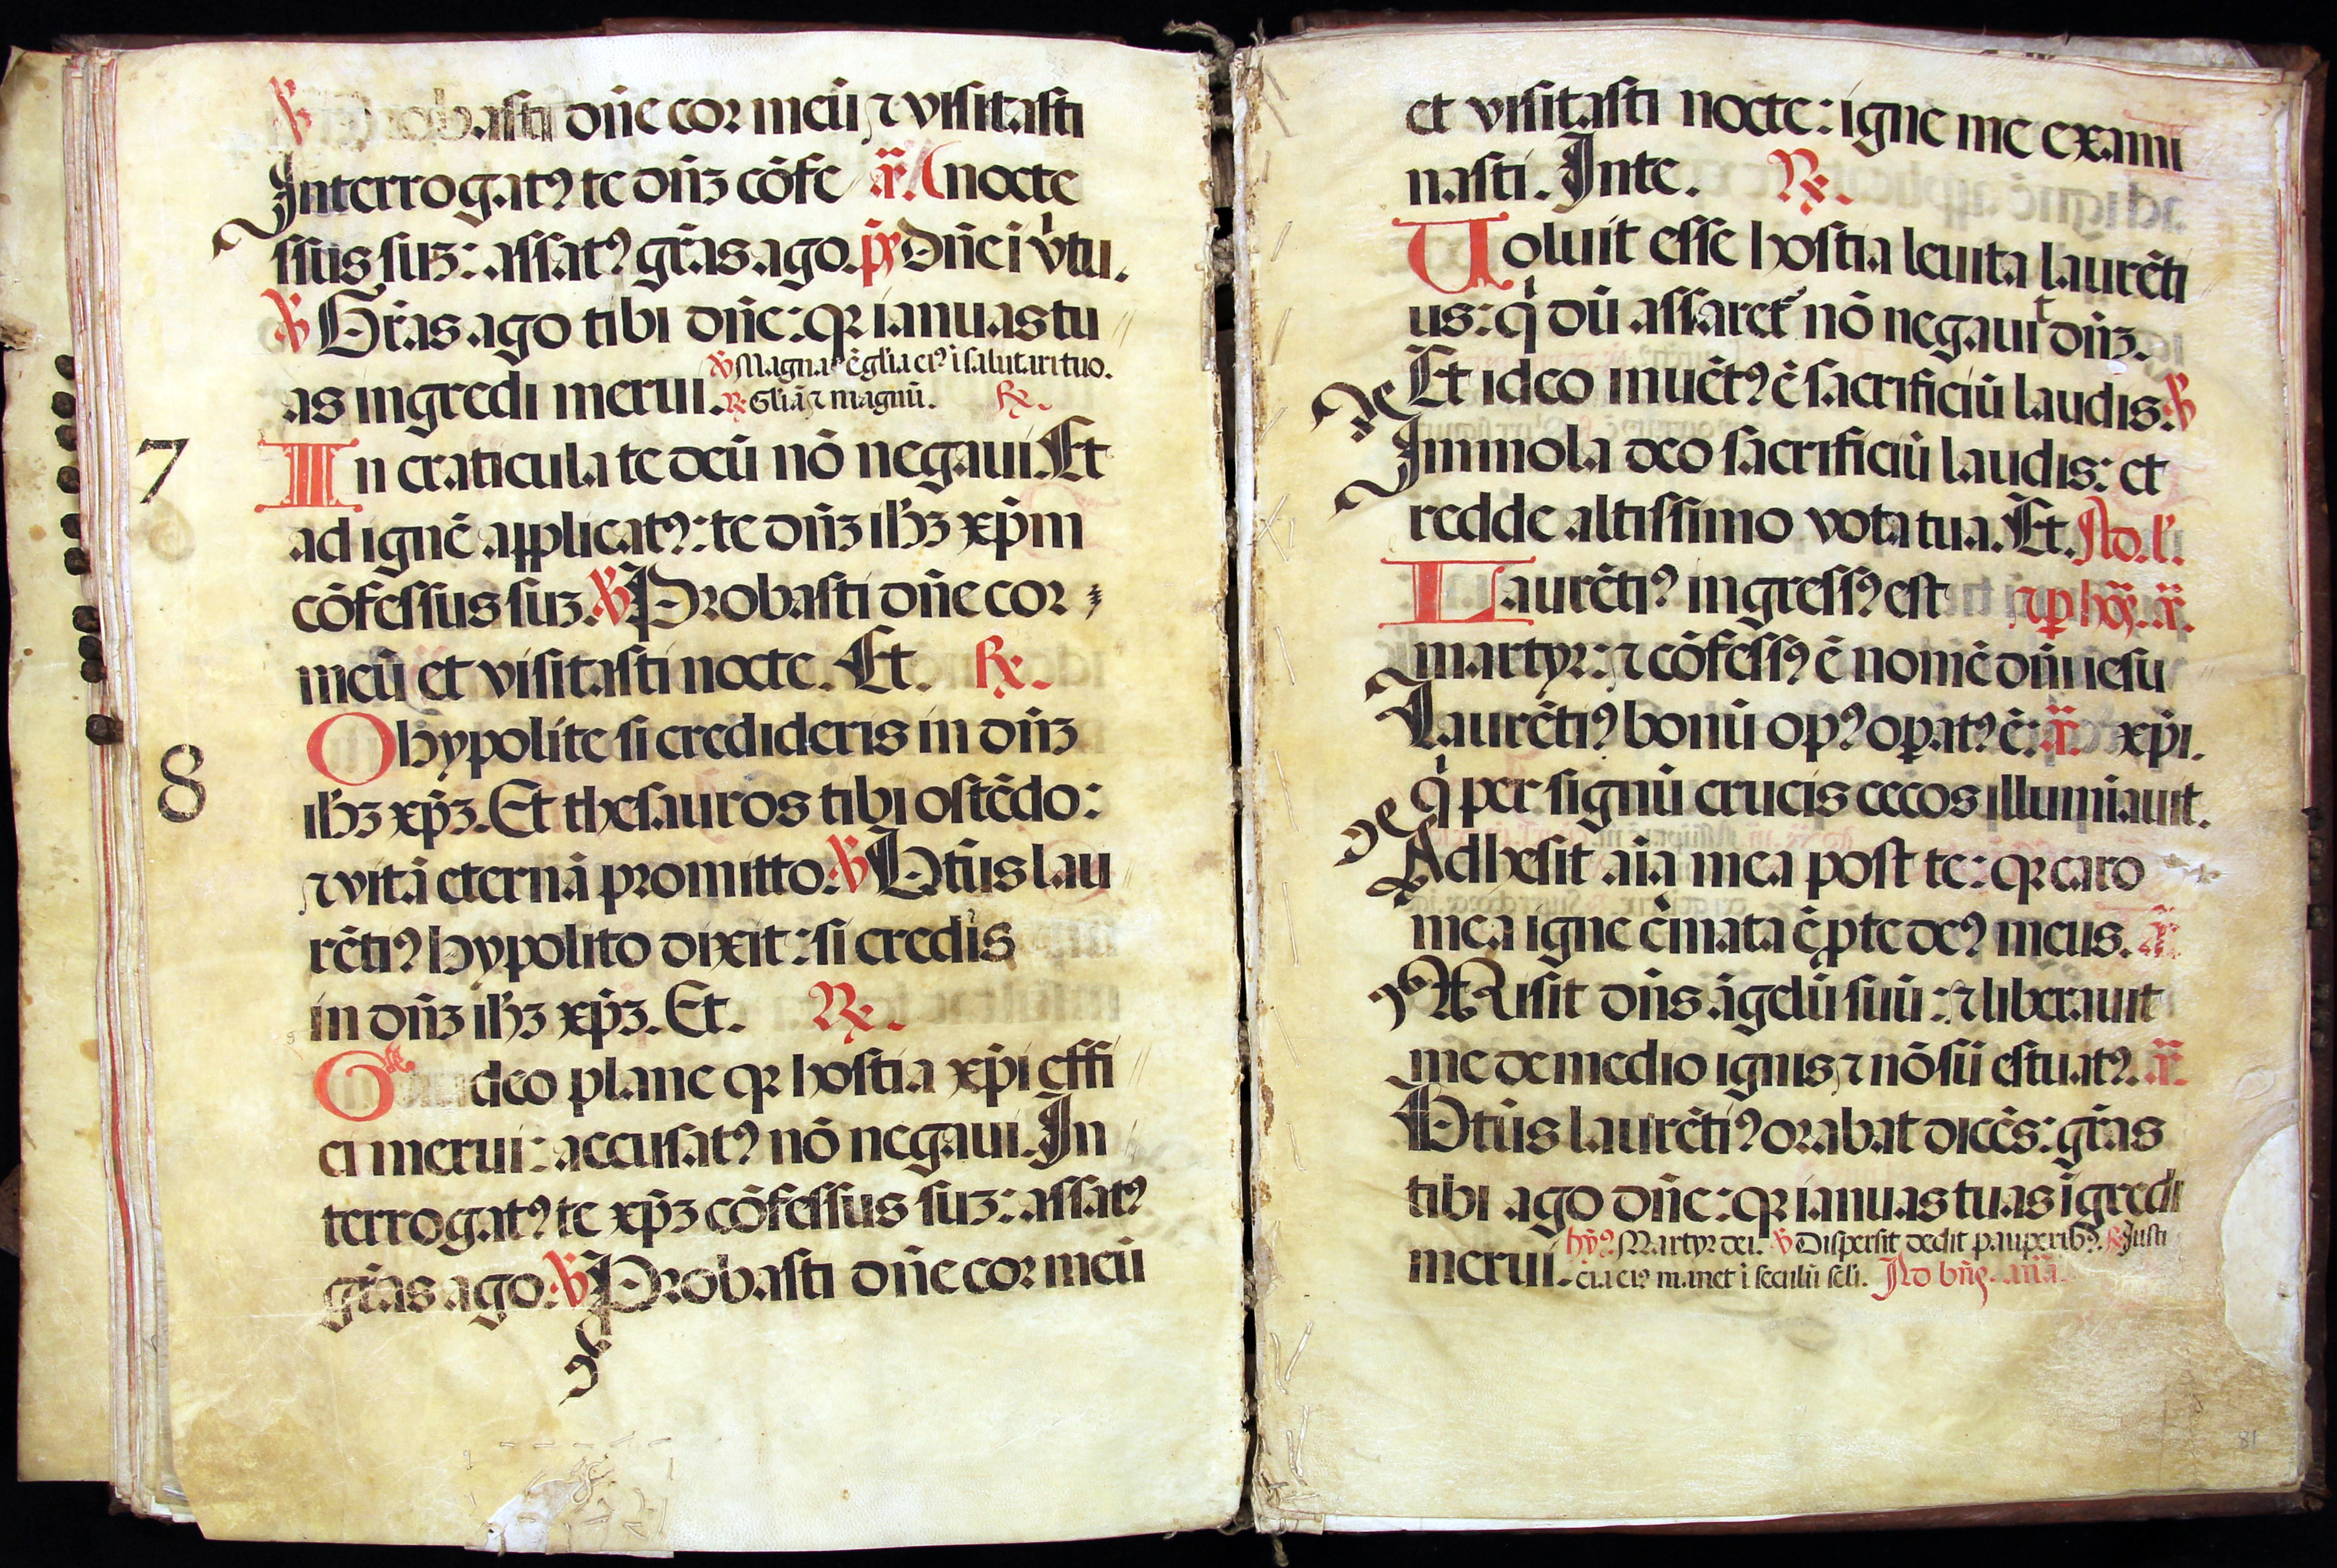 ℣ Probasti dn̄e cor meū ⁊ visitasti
Interrogatꝰ te dn̄ȝ cōfe r̄. (nocte
ssus suȝ: assatꝰ gr̄as ago. p̄s Dn̄e ī v̍tu.
℣ Gr̄as ago tibi dn̄e: qꝛ ianuas tu
℣ Magna ē gl̄ia eiꝰ ī salutari tuo.
as ingredi merui. ℟ Gl̄iā ⁊ magnū. ℟.
7 In craticula te deū nō negaui. Et
ad ignē applicatꝰ: te dn̄ȝ ih̄ȝ xp̄m
cōfessus suȝ. ℣ Probasti dn̄e cor
meū et visitasti nocte. Et. ℟.
O hypolite si credideris in dn̄ȝ
8 ih̄ȝ xp̄ȝ. Et thesauros tibi ostēdo:
⁊ vitā eternā promitto. ℣ Btūs lau
rētiꝰ hypolito dixit: si credis
in dn̄ȝ ih̄ȝ xp̄ȝ. Et. ℟.
deo plane qꝛ hostia xp̄i effi
ci merui: accusatꝰ nō negaui. In
terrogatꝰ te xp̄ȝ cōfessus suȝ: assatꝰ
gr̄as ago. ℣ Probasti dn̄e cor meū
et visitasti nocte: igne me exami
nasti. Inte. ℟.
Uoluit esse hostia leuita laurēti
us: q̍ dū assaret᷑ nō negauit dn̄ȝ.
Et ideo inuētꝰ ē sacrificiū laudis. ℣
Immola deo sacrificiū laudis: et
redde altissimo vota tua. Et. Ad.l'.
Laurētiꝰ ingressꝰ est ⁊ ꝑ
martyr: ⁊ cōfessꝰ ē nomē dn̄i iesu
Laurētiꝰ bonū opꝰ oꝑatꝰ ē: r̄. xp̄i.
q̍ per signū crucis cecos illumiāuit.
Adhesit aīa mea post te: qꝛ caro
mea igne c̍mata ē ꝓ te deꝰ meus. r̄.
Misit dn̄s āgelū suū: ⁊ liberauit
me de medio ignis ⁊ nō sū estuatꝰ. r̄.
Btūs laurētiꝰ orabat dicēs: gr̄as
tibi ago dn̄e: qꝛ ianuas tuas īgredi
hȳꝰ. Martyr dei. ℣ Dispersit dedit pauperibꝰ. ℟ Justi
merui. cia eiꝰ manet ī seculū sc̄li. Ad bn̄s. an̄a
81